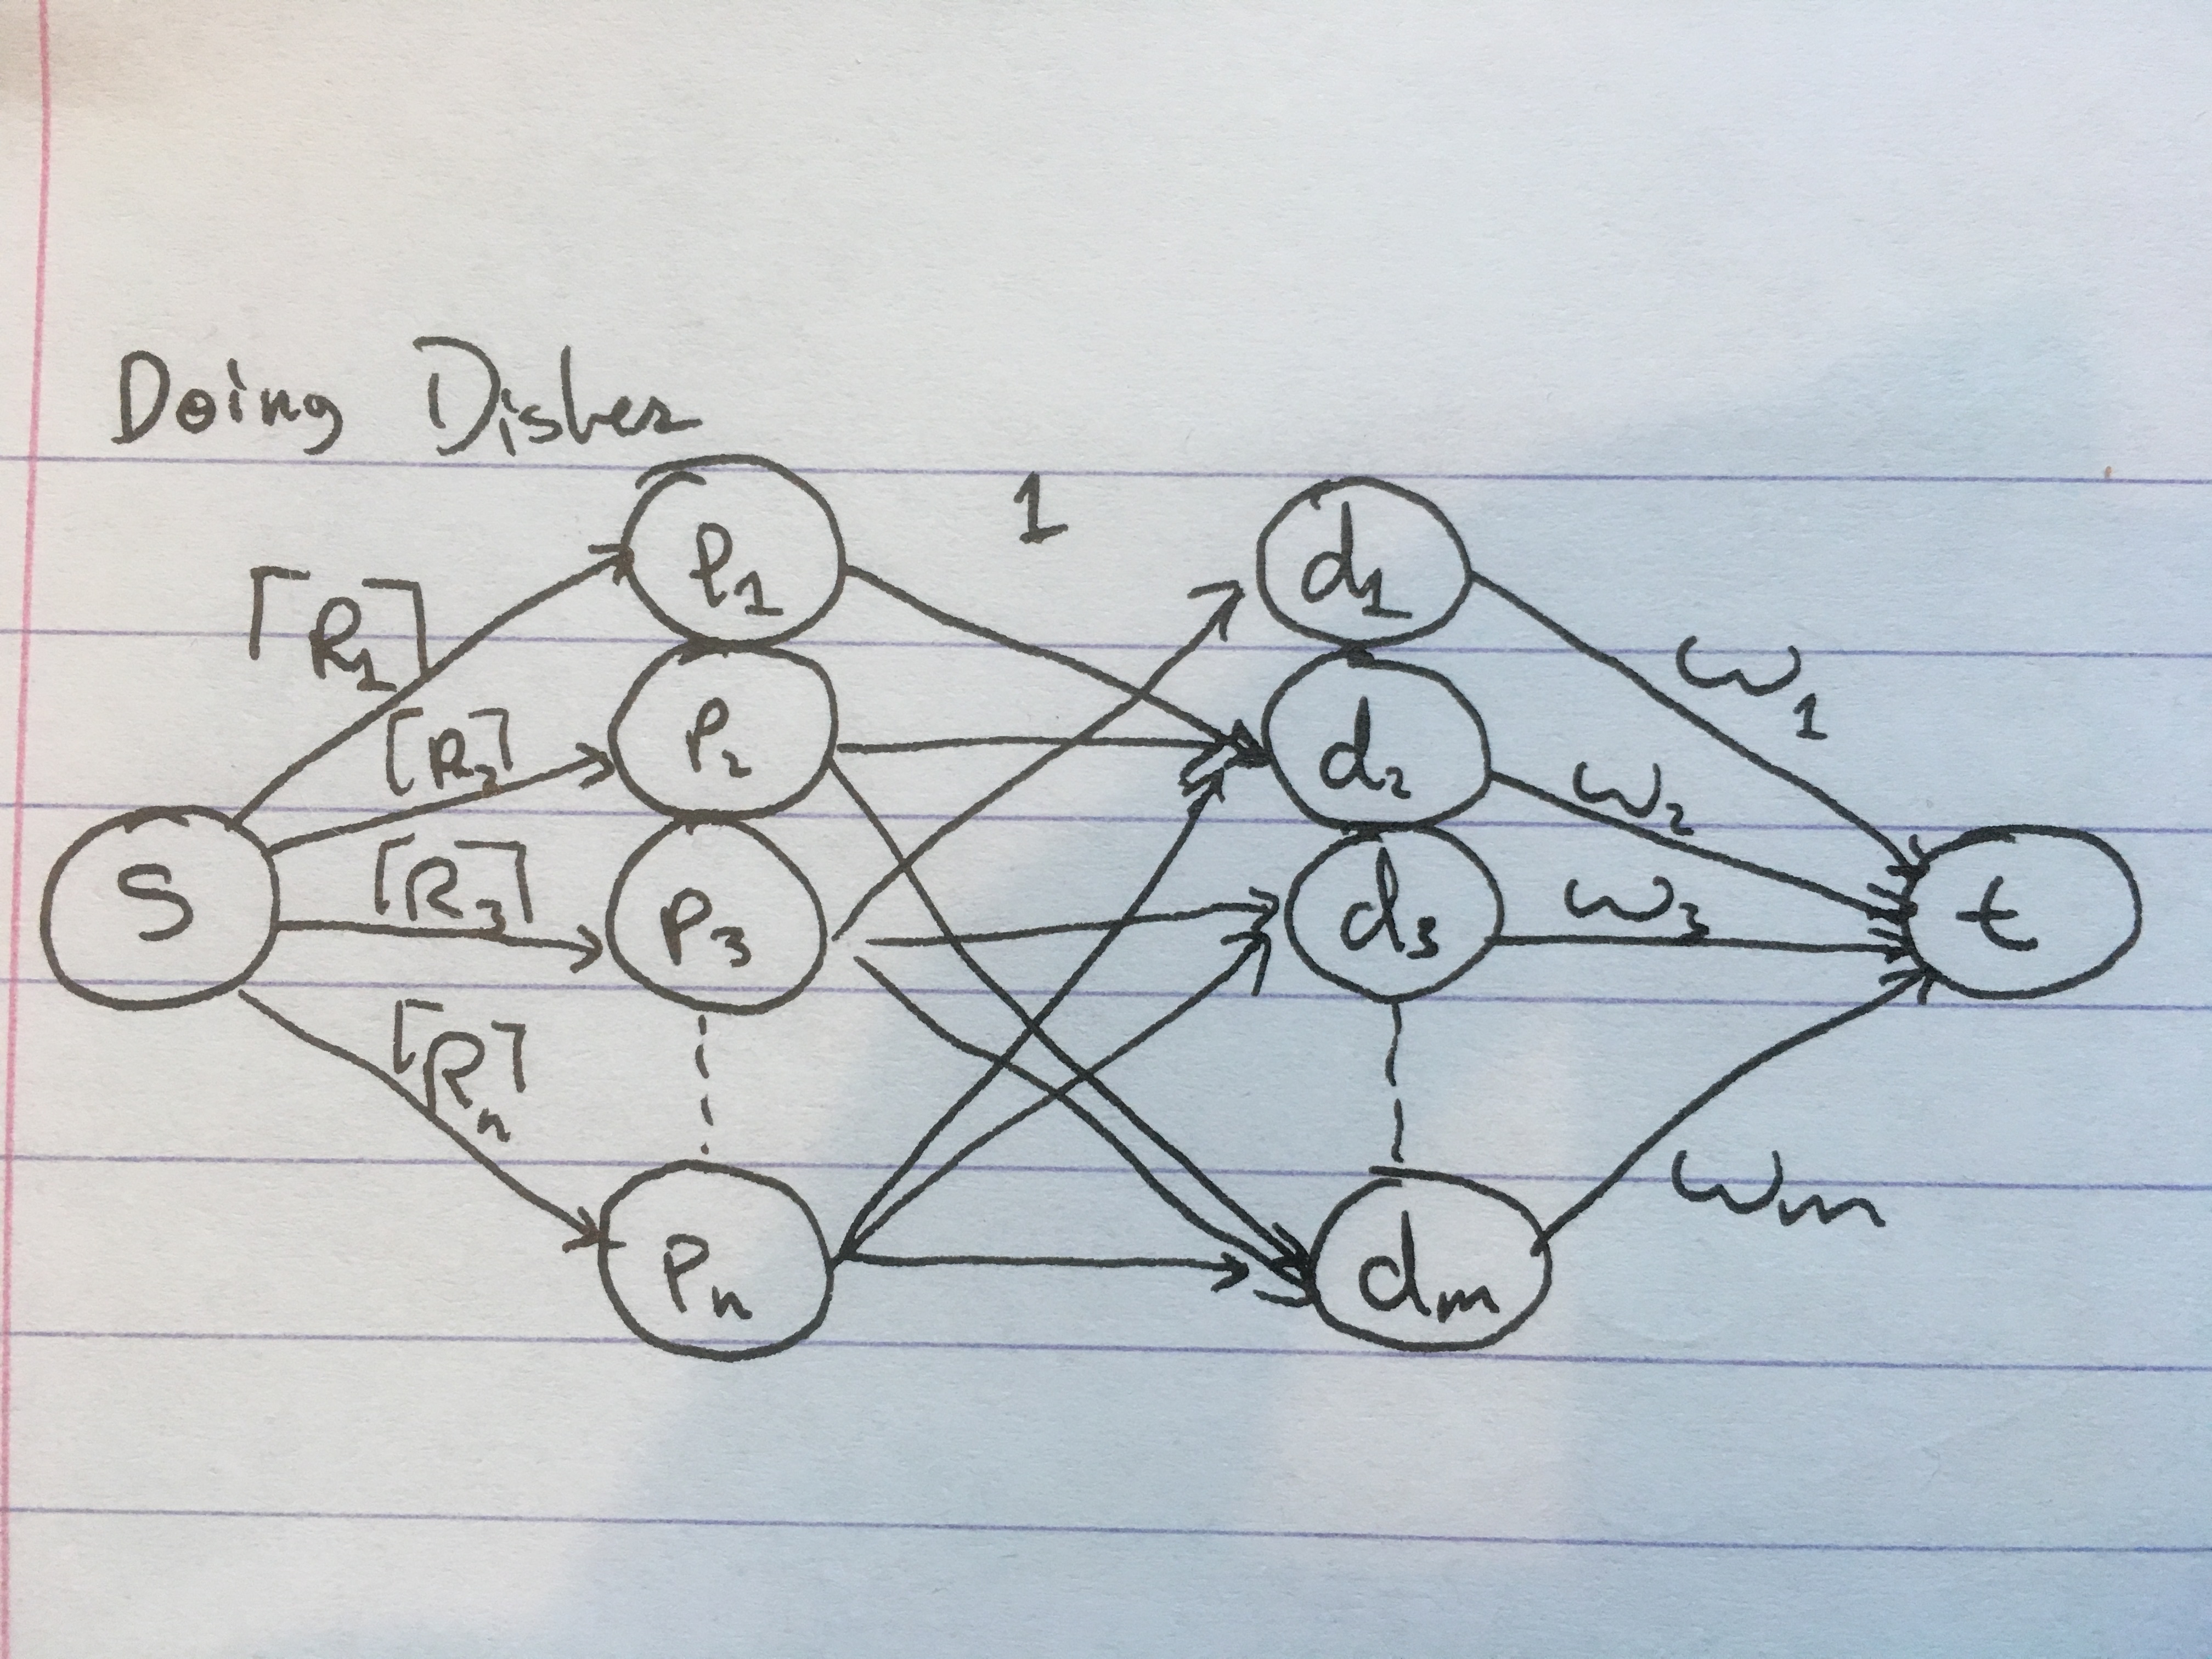 Doing Dishes
1
⌈R₁⌉
⌈R₂⌉
⌈R₃⌉
⌈Rₙ⌉
S
p₁
p₂
p₃
pₙ
d₁
d₂
d₃
dₘ
ω₁
ω₂
ω₃
ωₘ
t